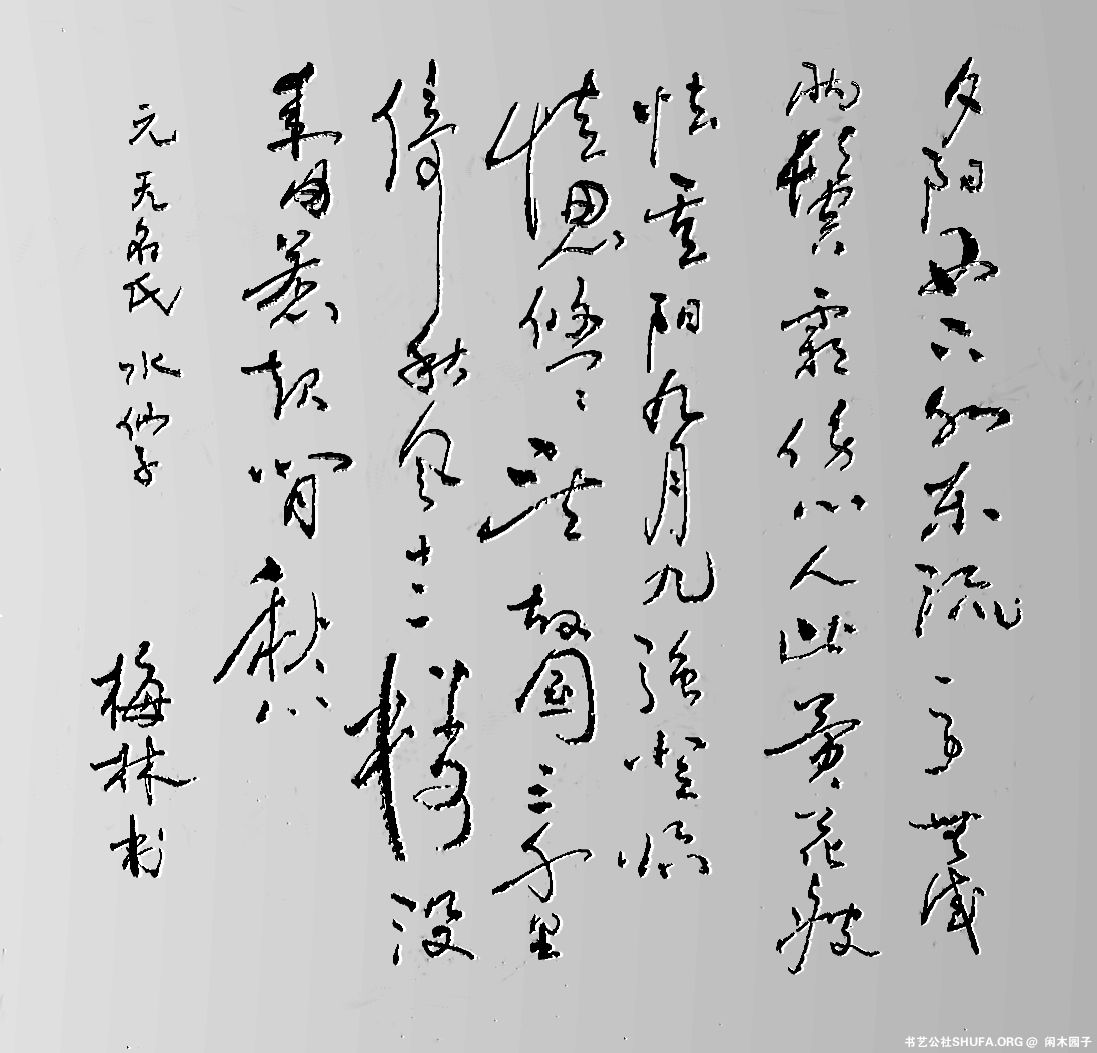 夕阳西下水东流一事無成
兩鬓霜傷心人比黄花瘦
怯重阳九月九強登临
情思悠悠望故國三千里
倚秋风十二楼没
来由惹起閒愁
元无名氏 水仙子 梅林书
书艺公社SHUFA.ORG @ 闲木园子